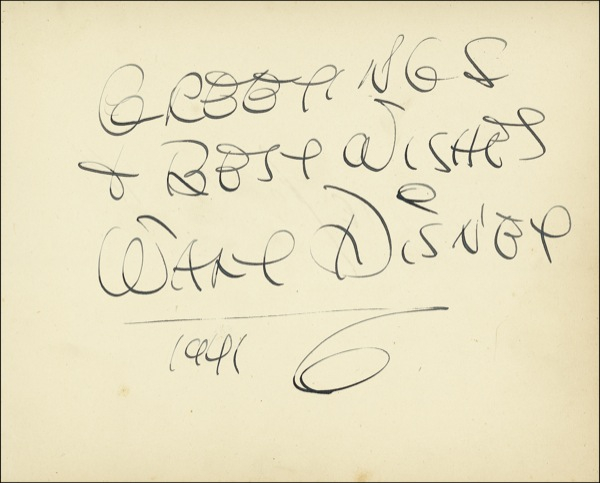 GREETINGS
& BEST WISHES
WALT DISNEY
1941